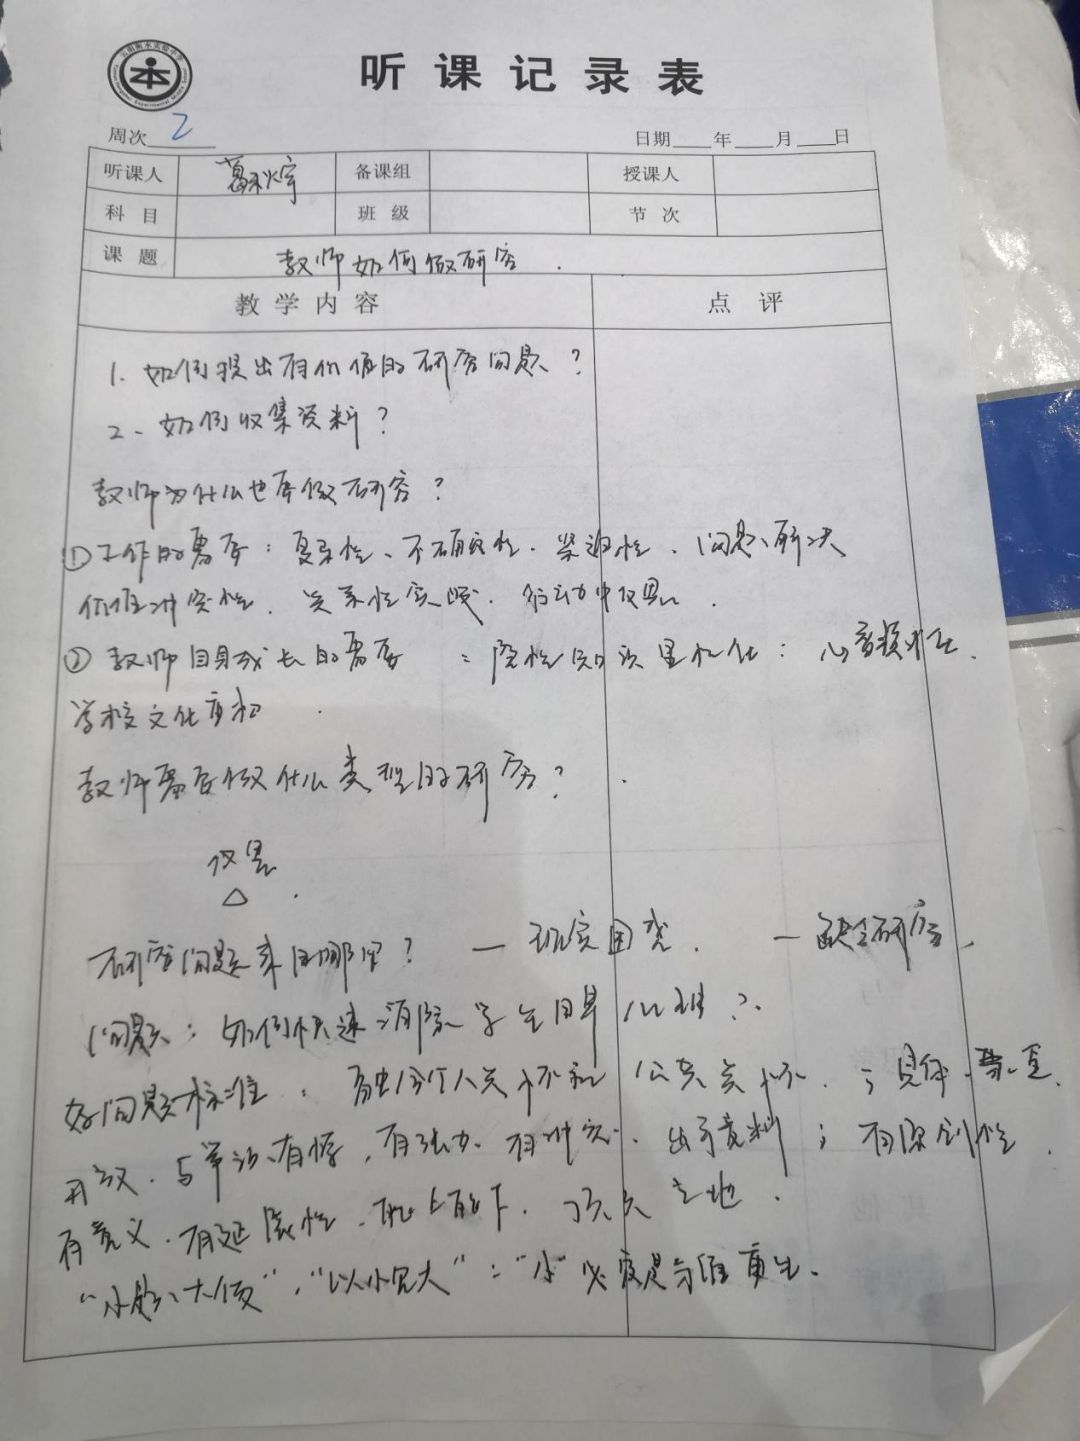 听课记录表
周次 2 日期 年 月 日
听课人 葛 备课组 授课人
科目 班级 节次
课题 教师如何做研究
教学内容 点评
1. 如何提出有价值的研究问题？
2、如何收集资料？
教师为什么也要做研究？
①工作的需要：复杂性、不确定性、紧迫性、问题解决
价值冲突性、关系性实践、行动中反思
②教师自身成长的需要：隐性知识显性化：心意
学校文化重构
教师需要做什么类型的研究？
反思
△
研究问题来自哪里？ — 现实困惑、 — 缺乏研究、
问题：如何快速消除学生自卑心理？
好问题标准：融合个人关怀和公共关怀、；具体、
开放、与常识有悖，有张力、有冲突、出乎意料；有原创性、
有意义、有延展性、能上能下、顶天立地、
“小题大做”，“以小见大”：“小”